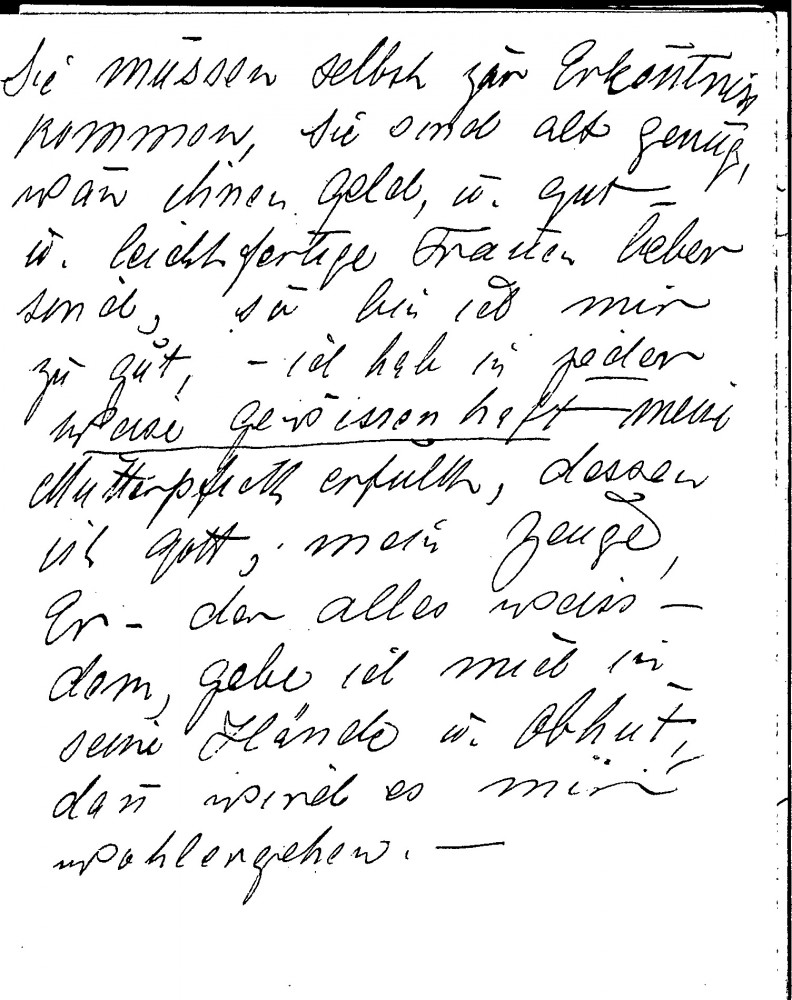 Sie müssen selbst zur Erkentniss
kommen, sie sind alt genug,
wan ihnen Geld, u. gut
u. leichtfertige Frauen lieber
sind, so bin ich mir
zu gut, – ich hab in jeder
weise gewissenhaft meine
Mutterpflicht erfüllt, dessen
ist Gott, mein Zeuge,
Er – der alles weiss –
dem, gebe ich mich in
seine Hände u. Obhut,
dan wird es mir
wohlergehen. –